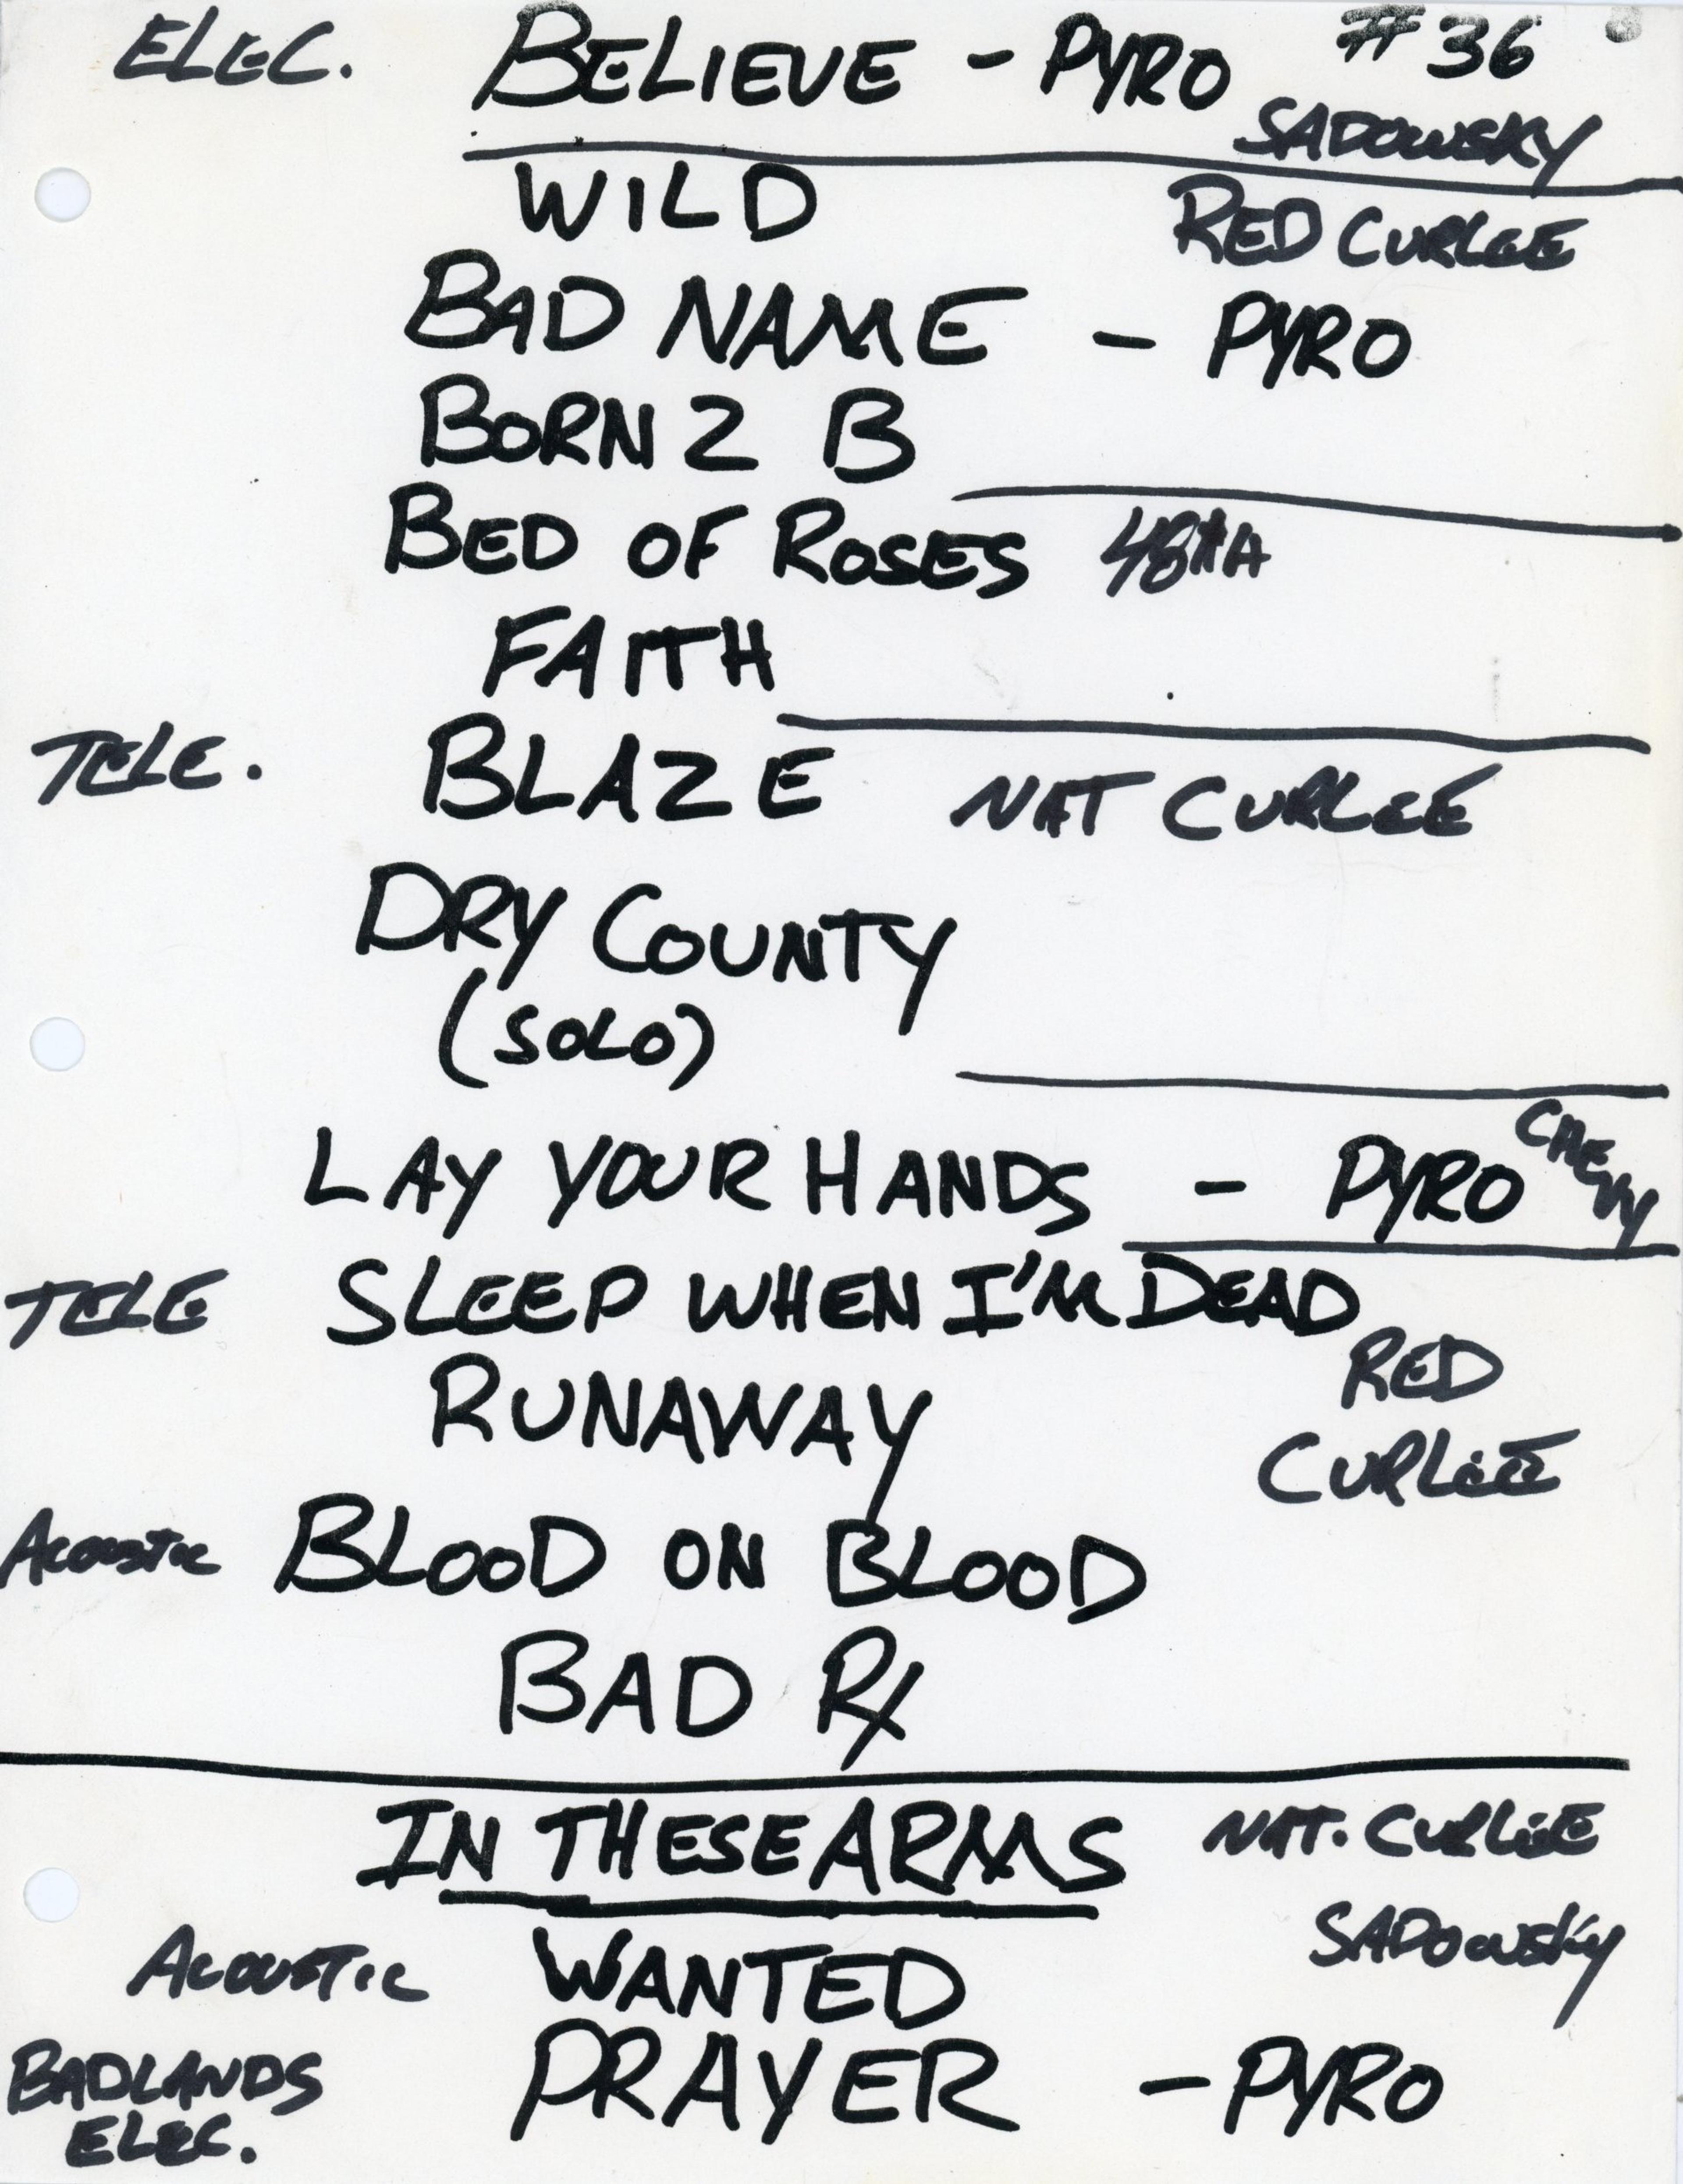 ELEC. BELIEVE - PYRO #36
SADOWSKY
WILD RED CURLEE
BAD NAME - PYRO
BORN 2 B
BED OF ROSES
FAITH
TELE. BLAZE NAT CURLEE
DRY COUNTY
(SOLO)
LAY YOUR HANDS - PYRO CHEVY
TELE SLEEP WHEN I'M DEAD
RUNAWAY RED
CURLEE
ACOUSTIC BLOOD ON BLOOD
BAD Rx
IN THESE ARMS NAT. CURLEE
SADOWSKY
ACOUSTIC WANTED
BADLANDS PRAYER - PYRO
ELEC.